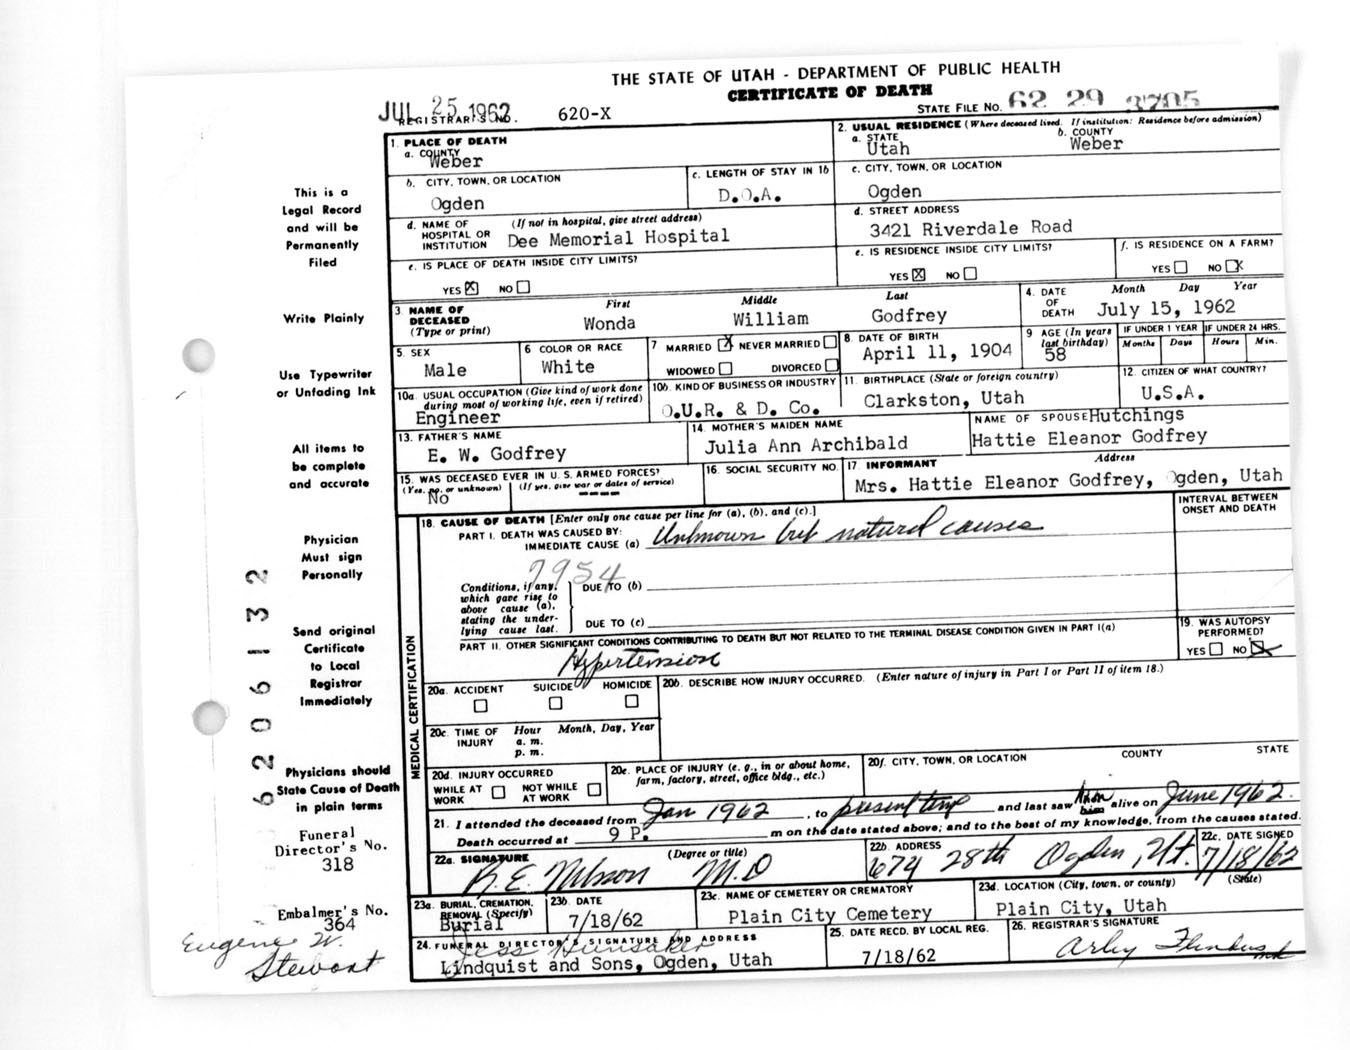 THE STATE OF UTAH - DEPARTMENT OF PUBLIC HEALTH
CERTIFICATE OF DEATH
JUL 25 1962
REGISTRAR'S NO. 620-X
STATE FILE NO. 62 29 3705
1. PLACE OF DEATH
a. COUNTY
Weber
2. USUAL RESIDENCE (Where deceased lived. If institution: Residence before admission)
a. STATE b. COUNTY
Utah Weber
b. CITY, TOWN, OR LOCATION
Ogden
c. LENGTH OF STAY IN 1b
D.O.A.
c. CITY, TOWN, OR LOCATION
Ogden
d. NAME OF HOSPITAL OR INSTITUTION (If not in hospital, give street address)
Dee Memorial Hospital
d. STREET ADDRESS
3421 Riverdale Road
e. IS PLACE OF DEATH INSIDE CITY LIMITS?
YES X NO
e. IS RESIDENCE INSIDE CITY LIMITS?
YES X NO
f. IS RESIDENCE ON A FARM?
YES NO X
3. NAME OF DECEASED (Type or print)
First Middle Last
Wonda William Godfrey
4. DATE OF DEATH Month Day Year
July 15, 1962
5. SEX
Male
6 COLOR OR RACE
White
7 MARRIED X NEVER MARRIED
WIDOWED DIVORCED
8. DATE OF BIRTH
April 11, 1904
9 AGE (In years last birthday)
58
IF UNDER 1 YEAR IF UNDER 24 HRS.
Months Days Hours Min.
10a. USUAL OCCUPATION (Give kind of work done during most of working life, even if retired)
Engineer
10b. KIND OF BUSINESS OR INDUSTRY
O.U.R. & D. Co.
11. BIRTHPLACE (State or foreign country)
Clarkston, Utah
12. CITIZEN OF WHAT COUNTRY?
U.S.A.
13. FATHER'S NAME
E. W. Godfrey
14. MOTHER'S MAIDEN NAME
Julia Ann Archibald
NAME OF SPOUSE Hutchings
Hattie Eleanor Godfrey
15. WAS DECEASED EVER IN U.S. ARMED FORCES?
(Yes, no, or unknown) (If yes, give war or dates of service)
No ----
16. SOCIAL SECURITY NO.
17. INFORMANT Address
Mrs. Hattie Eleanor Godfrey, Ogden, Utah
MEDICAL CERTIFICATION
18. CAUSE OF DEATH [Enter only one cause per line for (a), (b), and (c).]
INTERVAL BETWEEN ONSET AND DEATH
PART I. DEATH WAS CAUSED BY:
IMMEDIATE CAUSE (a) Unknown but natural causes
7954
Conditions, if any, which gave rise to above cause (a), stating the underlying cause last.
DUE TO (b)
DUE TO (c)
PART II. OTHER SIGNIFICANT CONDITIONS CONTRIBUTING TO DEATH BUT NOT RELATED TO THE TERMINAL DISEASE CONDITION GIVEN IN PART I(a)
Hypertension
19. WAS AUTOPSY PERFORMED?
YES NO X
20a. ACCIDENT SUICIDE HOMICIDE
20b. DESCRIBE HOW INJURY OCCURRED. (Enter nature of injury in Part I or Part II of item 18.)
20c. TIME OF INJURY Hour Month, Day, Year
a. m.
p. m.
20d. INJURY OCCURRED
WHILE AT WORK NOT WHILE AT WORK
20e. PLACE OF INJURY (e. g., in or about home, farm, factory, street, office bldg., etc.)
20f. CITY, TOWN, OR LOCATION COUNTY STATE
21. I attended the deceased from Jan 1962, to present time and last saw him alive on June 1962.
Death occurred at 9 P. m on the date stated above; and to the best of my knowledge, from the causes stated.
22a. SIGNATURE (Degree or title)
R. E. Nilsson M.D
22b. ADDRESS
674 28th Ogden, Ut.
22c. DATE SIGNED
7/18/62
23a. BURIAL, CREMATION, REMOVAL (Specify)
Burial
23b. DATE
7/18/62
23c. NAME OF CEMETERY OR CREMATORY
Plain City Cemetery
23d. LOCATION (City, town, or county) (State)
Plain City, Utah
24. FUNERAL DIRECTOR'S SIGNATURE AND ADDRESS
Jess Hunsaker
Lindquist and Sons, Ogden, Utah
25. DATE RECD. BY LOCAL REG.
7/18/62
26. REGISTRAR'S SIGNATURE
This is a
Legal Record
and will be
Permanently
Filed
Write Plainly
Use Typewriter
or Unfading Ink
All items to
be complete
and accurate
Physician
Must sign
Personally
Send original
Certificate
to Local
Registrar
Immediately
Physicians should
State Cause of Death
in plain terms
Funeral
Director's No.
318
Embalmer's No.
364
Eugene W.
Stewart
6206132